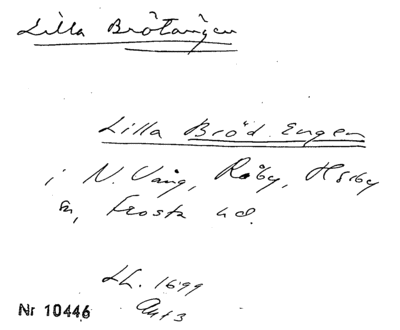 Lilla Brötången
Lilla Bröd Engen
i N. Vång, Råby, H
Frosta hd.
Lh. 1699
Nr 10446